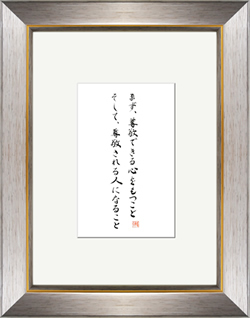 まず、尊敬できる心をもつこと
そして、尊敬される人になること